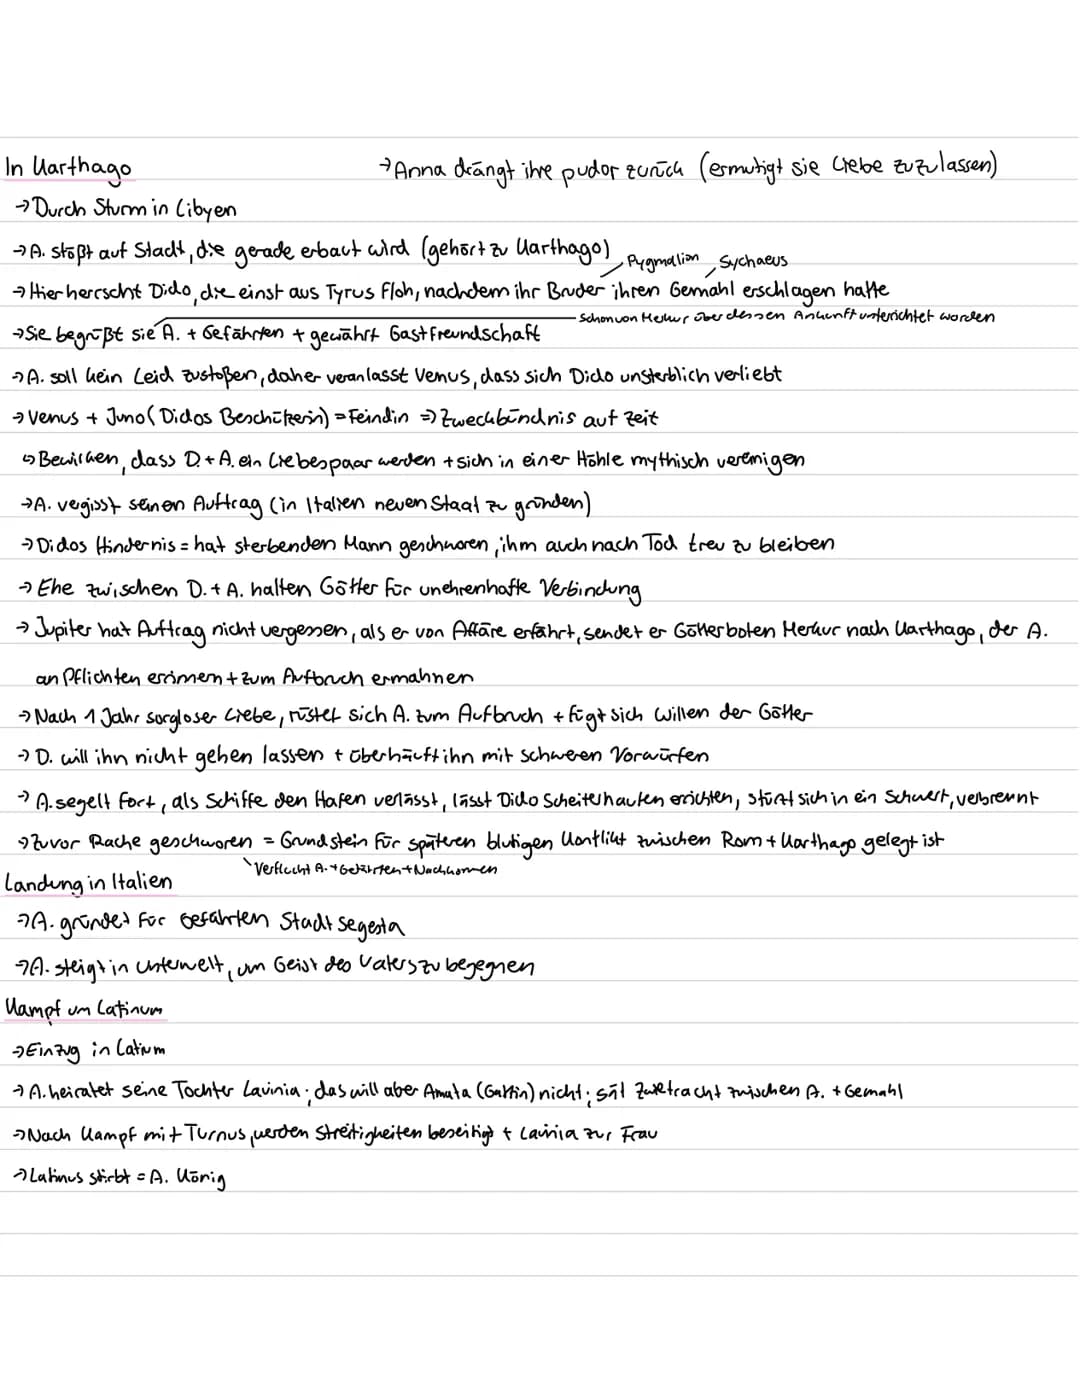 In Karthago
→ Anna drängt ihre pudor zurück (ermutigt sie Liebe zuzulassen)
→ Durch Sturm in Libyen
→ A. stößt auf Stadt, die gerade erbaut wird (gehört zu Karthago)
Pygmalion Sychaeus
→ Hier herrscht Dido, die einst aus Tyrus floh, nachdem ihr Bruder ihren Gemahl erschlagen hatte
schon von Merkur über dessen Ankunft unterrichtet worden
→ Sie begrüßt sie A. + Gefährten + gewährt Gastfreundschaft
→ A. soll kein Leid zustoßen, daher veranlasst Venus, dass sich Dido unsterblich verliebt
→ Venus + Juno (Didos Beschützerin) = Feindin => Zweckbündnis auf Zeit
↳ Bewirken, dass D. + A. ein Liebespaar werden + sich in einer Höhle mythisch vereinigen
→ A. vegisst seinen Auftrag (in Italien neuen Staat zu gründen)
→ Didos Hindernis = hat sterbenden Mann geschworen, ihm auch nach Tod treu zu bleiben
→ Ehe zwischen D. + A. halten Götter für unehrenhafte Verbindung
→ Jupiter hat Auftrag nicht vergessen, als er von Affäre erfährt, sendet er Götterboten Merkur nach Karthago, der A.
an Pflichten erinnern + zum Aufbruch ermahnen
→ Nach 1 Jahr sorgloser Liebe, rüstet sich A. zum Aufbruch + fügt sich Willen der Götter
→ D. will ihn nicht gehen lassen + überhäuft ihn mit schweren Vorwürfen
→ A. segelt fort, als Schiffe den Hafen verlässt, lässt Dido Scheiterhaufen errichten, stürzt sich in ein Schwert, verbrennt
→ Zuvor Rache geschworen = Grundstein für späteren blutigen Konflikt zwischen Rom + Karthago gelegt ist
Verflucht A. + Gefährten + Nachkommen
Landung in Italien
→ A. gründet für Gefährten Stadt Segesta
→ A. steigt in Unterwelt, um Geist des Vaters zu begegnen
Kampf um Latinum
→ Einzug in Latium
→ A. heiratet seine Tochter Lavinia; das will aber Amata (Gattin) nicht; sät Zwietracht zwischen A. + Gemahl
→ Nach Kampf mit Turnus, werden Streitigkeiten beseitigt + Lavinia zur Frau
→ Latinus stirbt = A. König